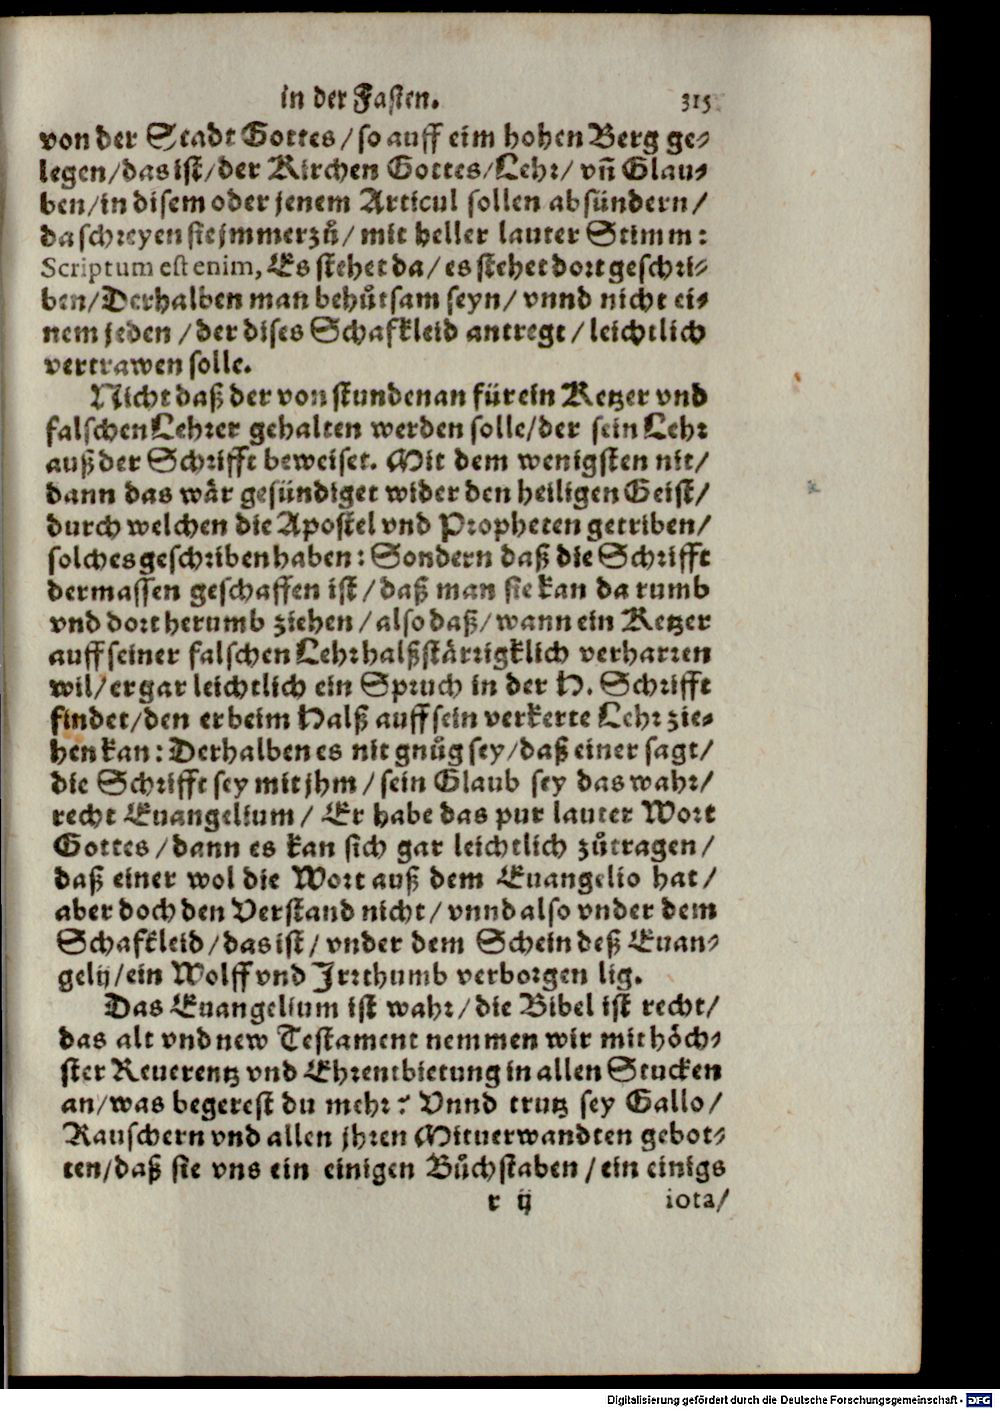 in der Fasten. 315
von der Stadt Gottes/so auff eim hohen Berg ge-
legen/das ist/der Kirchen Gottes/Lehr/ vñ Glau-
ben/in disem oder jenem Articul sollen absündern/
da schreyen sie jmmerzů/ mit heller lauter Stimm:
Scriptum est enim, Es stehet da/ es stehet dort geschri-
ben/Derhalben man behůtsam seyn/ vnnd nicht ei-
nem jeden /der dises Schafkleid antregt/leichtlich
vertrawen solle.
Nicht daß der von stunden an für ein Ketzer vnd
falschen Lehrer gehalten werden solle/der sein Lehr
auß der Schrifft beweiset. Mit dem wenigsten nit/
dann das wär gesündiget wider den heiligen Geist/
durch welchen die Apostel vnd Propheten getriben/
solches geschriben haben: Sondern daß die Schrifft
dermassen geschaffen ist/daß man sie kan da rumb
vnd dort herumb ziehen/also daß/wann ein Ketzer
auff seiner falschen Lehr halßstärrigklich verharren
wil/er gar leichtlich ein Spruch in der H. Schrifft
findet/den er beim Halß auff sein verkerte Lehr zie-
hen kan: Derhalben es nit gnůg sey/daß einer sagt/
die Schrifft sey mit jhm/sein Glaub sey das wahr/
recht Euangelium/ Er habe das pur lauter Wort
Gottes/dann es kan sich gar leichtlich zůtragen/
daß einer wol die Wort auß dem Euangelio hat/
aber doch den Verstand nicht/ vnnd also vnder dem
Schafkleid/das ist/ vnder dem Schein deß Euan-
gelij/ein Wolff vnd Irrthumb verborgen lig.
Das Euangelium ist wahr/die Bibel ist recht/
das alt vnd new Testament nemmen wir mit höch-
ster Reuerentz vnd Ehrentbietung in allen Stucken
an/was begerest du mehr? Vnnd trutz sey Gallo/
Rauschern vnd allen jhren Mituerwandten gebot-
ten/daß sie vns ein einigen Bůchstaben/ein einigs
r ij iota/
Digitalisierung gefördert durch die Deutsche Forschungsgemeinschaft - DFG